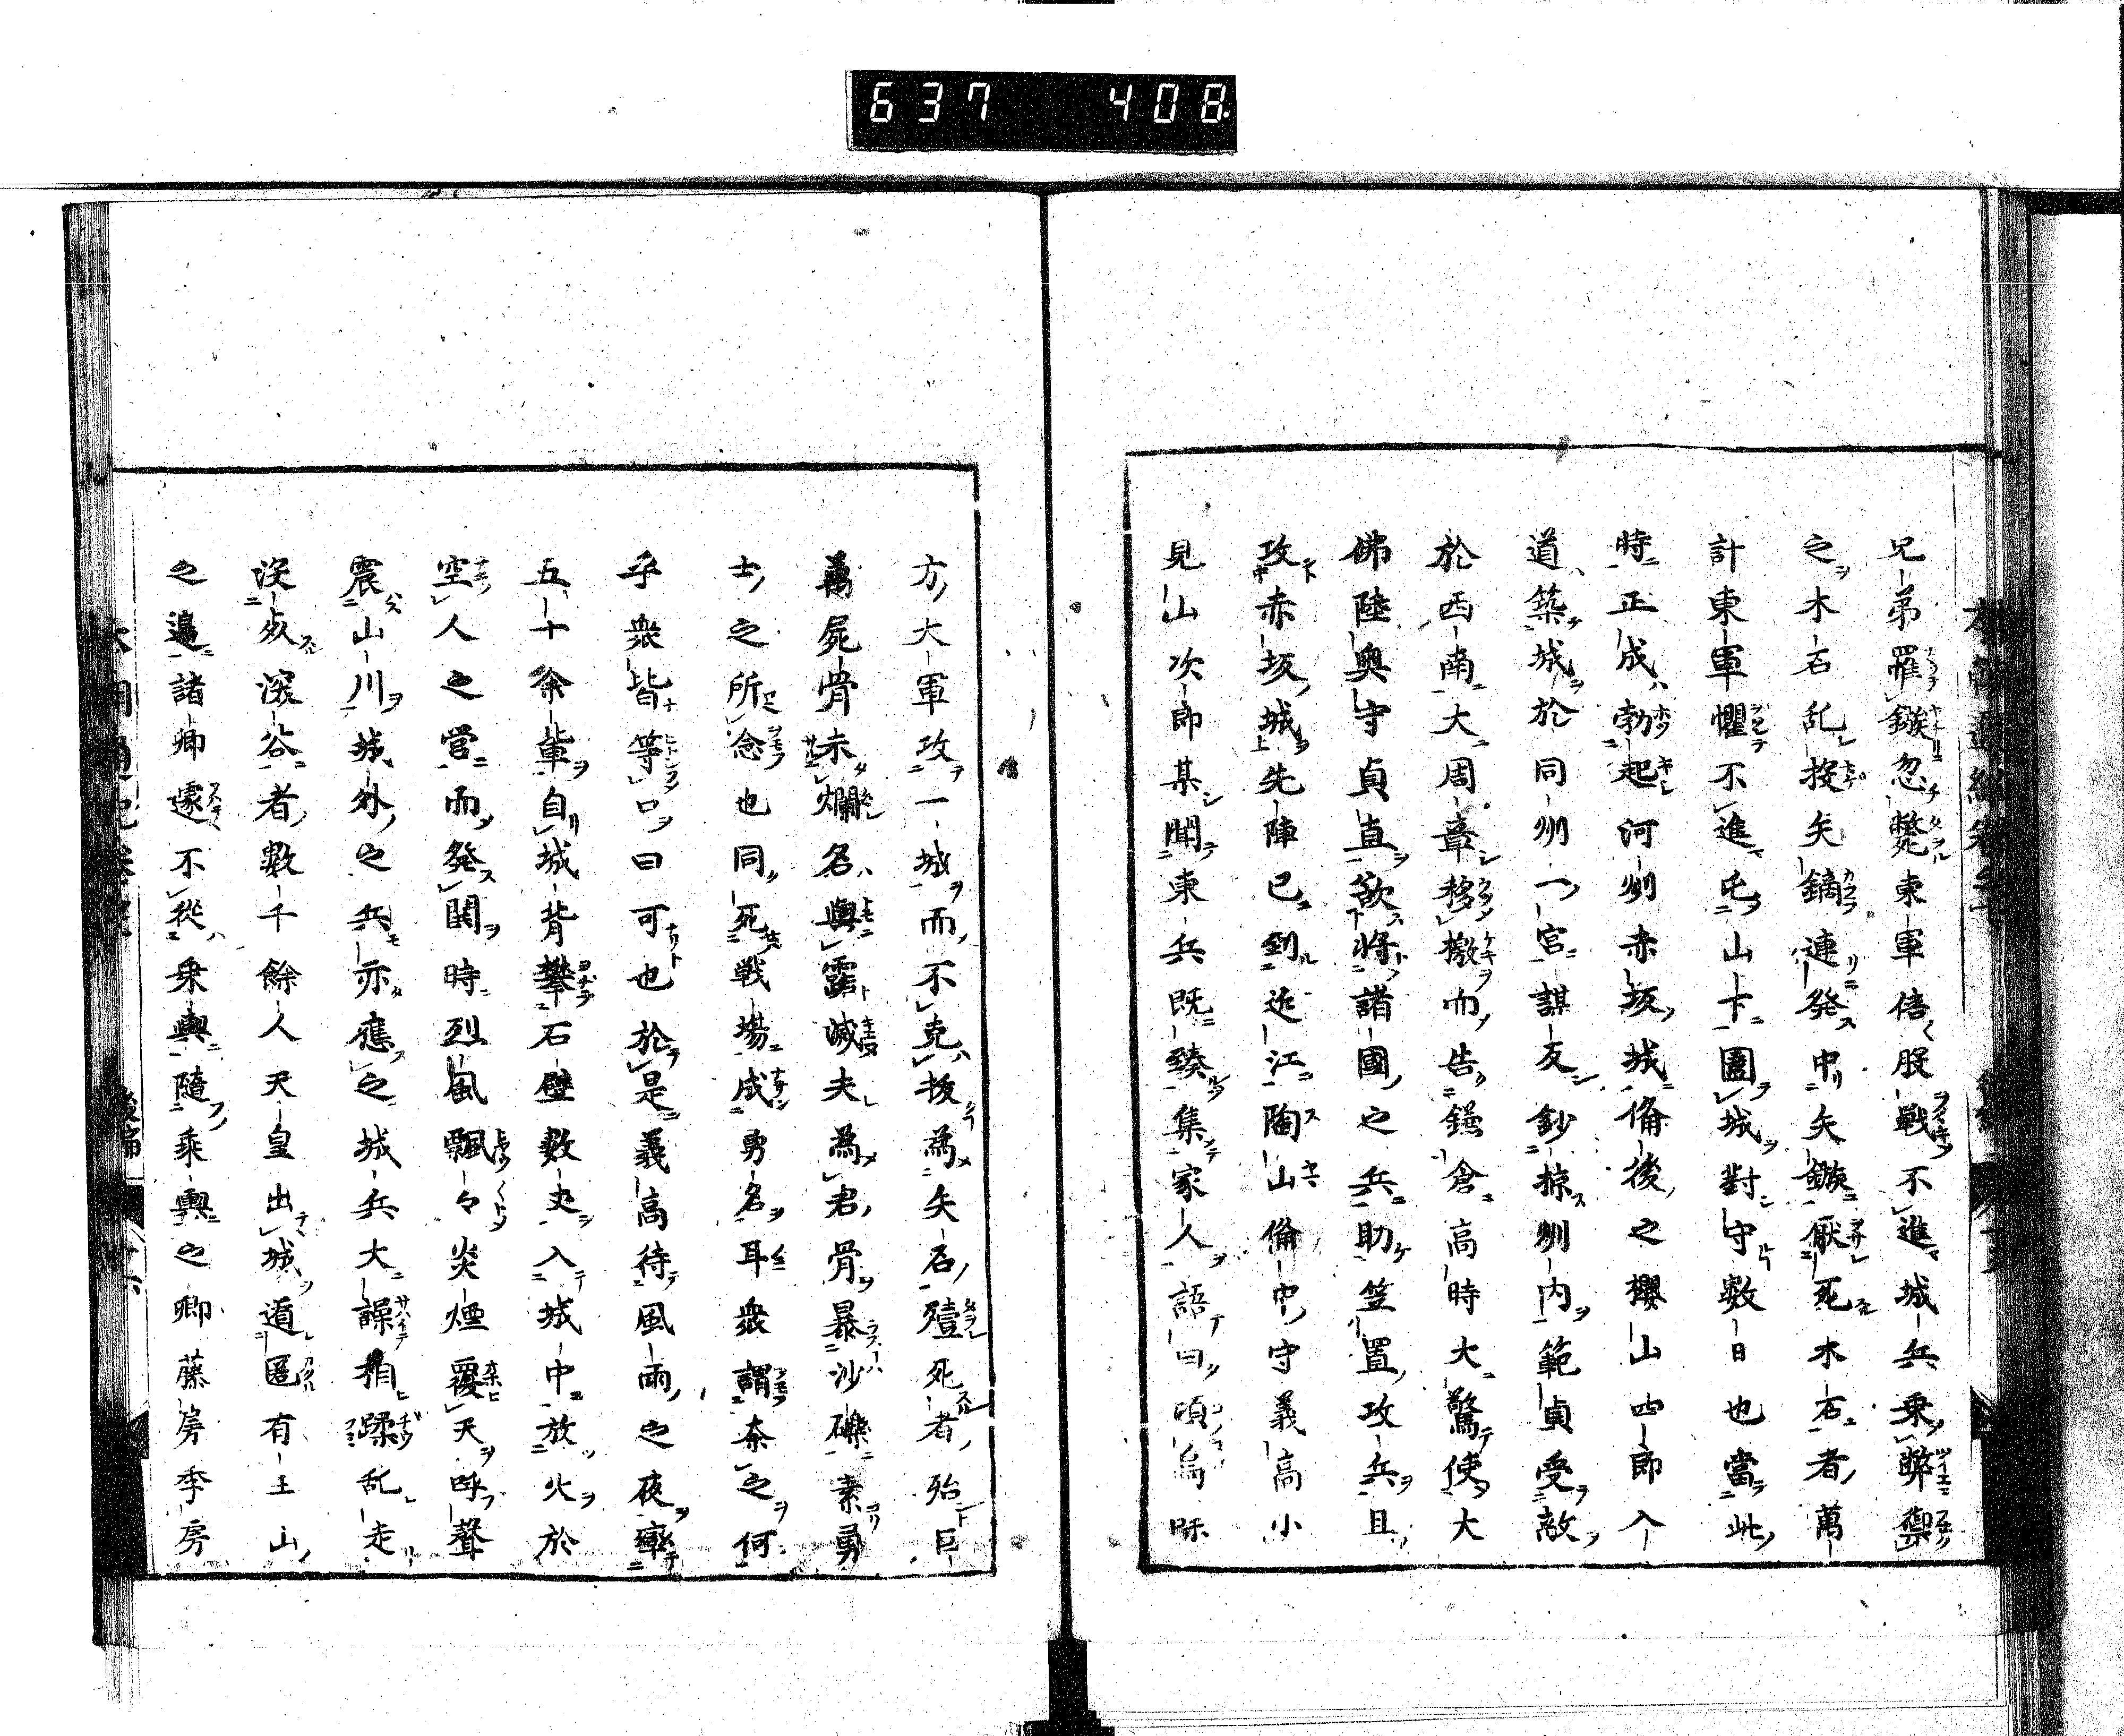 637 408
兄弟罹鏃忽斃東軍倍股戰不進城兵乗弊禦
之木石乱投矢鏑連発中矢鏃厭死木石者萬
計東軍懼不進屯山下圍城對守數日也當此
時正成勃起河州赤坂城備後之櫻山四郎入
道築城於同州一宮謀反鈔掠州内範貞受敵
於西南大周章移檄而告鎌倉高時大驚使大
佛陸奥守貞直欲将諸國之兵助笠置攻兵且
攻赤坂城先陣已到近江陶山備中守義高小
見山次郎某聞東兵既臻集家人語曰頃為
方大軍攻一城而不克抜為矢石殪死者殆巨
萬屍骨未爛名與露滅夫為君骨暴沙礫素勇
士之所念也同死戦場成勇名耳衆謂奈之何
乎衆皆等口曰可也於是義高待風雨之夜率
五十余輩自城背攀石壁数丈入城中放火於
空人之営而発鬨時烈風飄々炎煙覆天呼聲
震山川城外之兵亦應之城兵大譟相蹂乱走
没・深谷者數千餘人天皇出城遁匿有王山
之邉諸卿遽不從乗輿隨乗輿之卿藤房季房